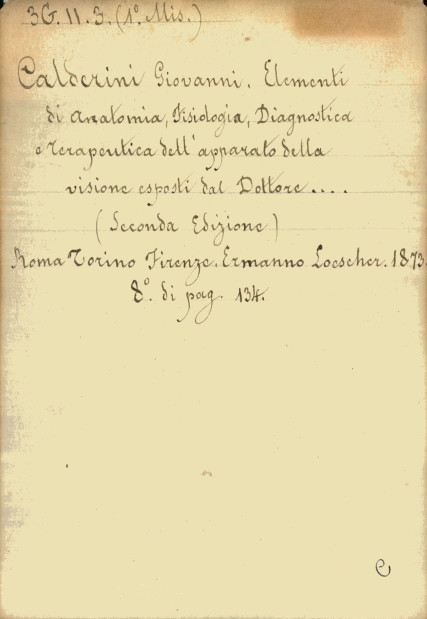 3G. 11. 3. (1º. Mis.)
Calderini Giovanni. Elementi
di Anatomia, Fisiologia, Diagnostica
e Terapeutica dell'apparato della
visione esposti dal Dottore....
(Seconda Edizione)
Roma Torino Firenze. Ermanno Loescher. 1873.
8º. di pag. 134.
C